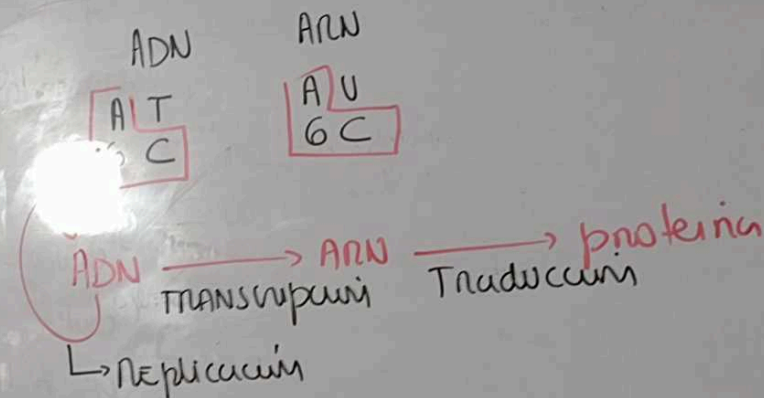 ADN ARN
A T A U
C G C
ADN → ARN → proteína
Transcripción Traducción
↳ Replicación